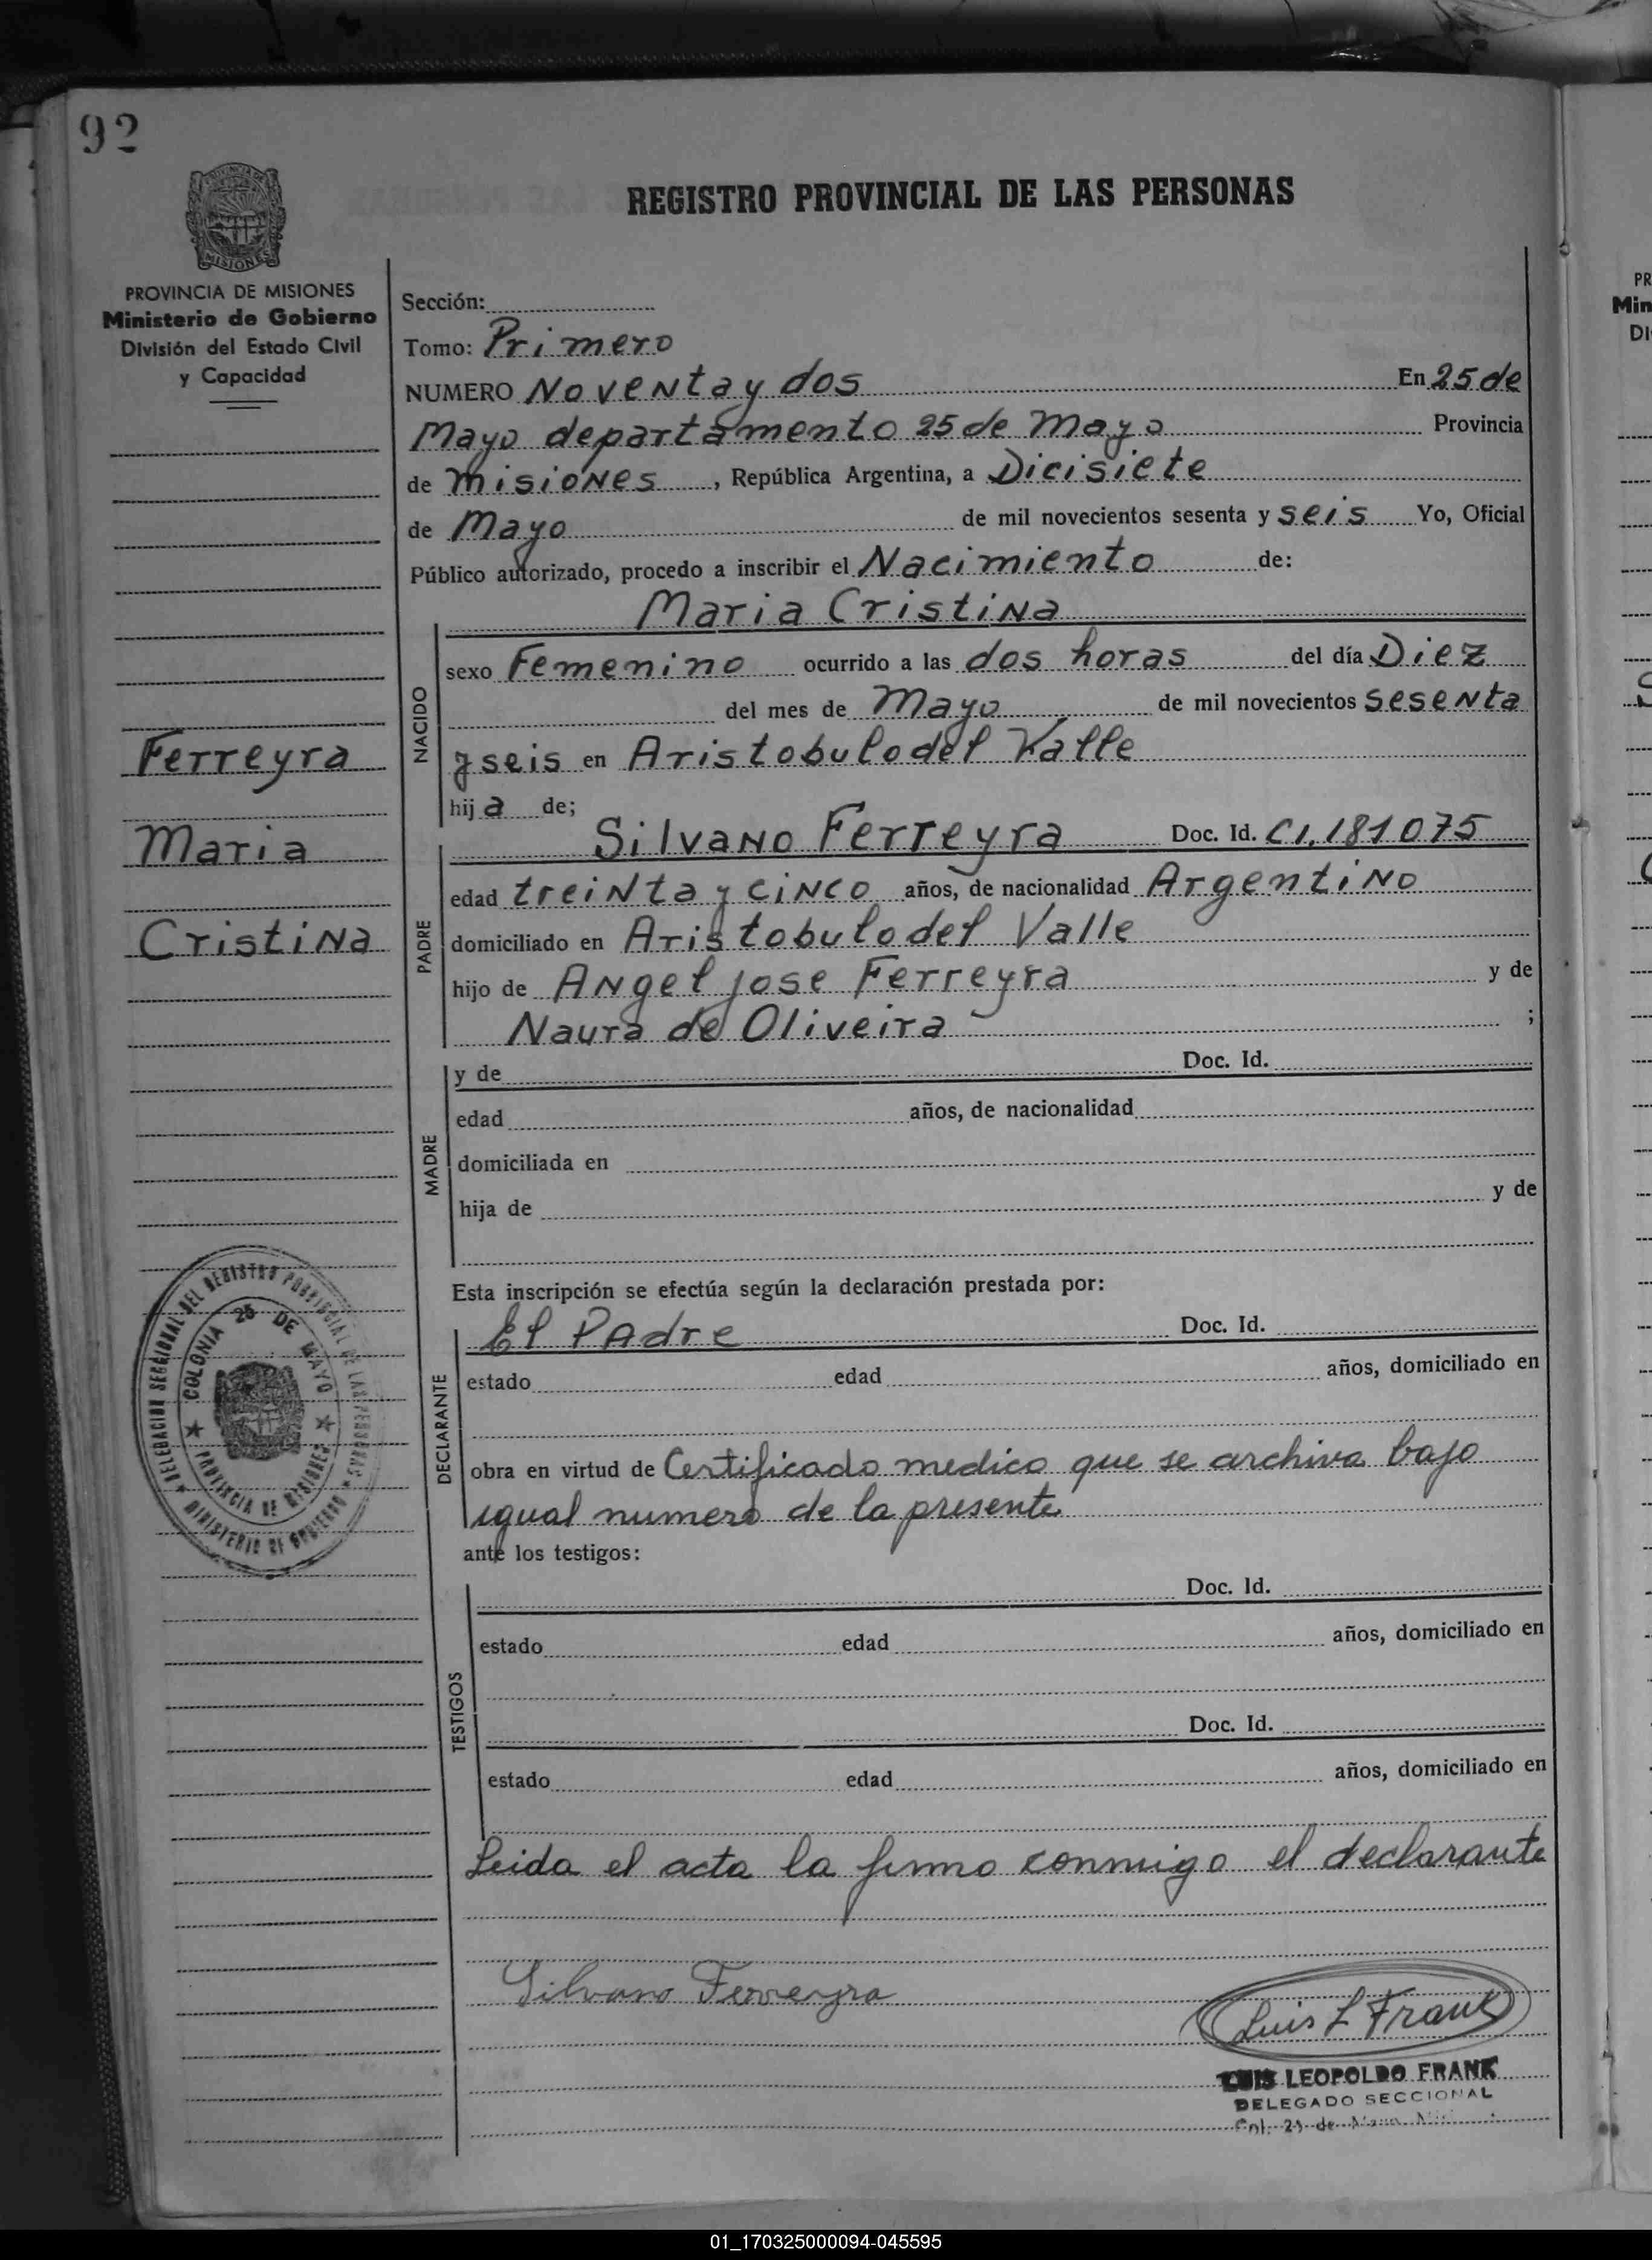 92
MISIONES
REGISTRO PROVINCIAL DE LAS PERSONAS
PROVINCIA DE MISIONES
Ministerio de Gobierno
División del Estado Civil
y Capacidad
Sección:
Tomo: Primero
NUMERO Noventa y dos En 25 de
Mayo departamento 25 de Mayo Provincia
de Misiones, República Argentina, a Dicisiete
de Mayo de mil novecientos sesenta y seis Yo, Oficial
Público autorizado, procedo a inscribir el Nacimiento de:
Maria Cristina
NACIDO
sexo Femenino ocurrido a las dos horas del día Diez
del mes de Mayo de mil novecientos sesenta
y seis en Aristobulo del Valle
hija de;
Ferreyra
Maria
Cristina
Silvano Ferreyra Doc. Id. CI. 181075
PADRE
edad treinta y cinco años, de nacionalidad Argentino
domiciliado en Aristobulo del Valle
hijo de Angel Jose Ferreyra y de
Naura de Oliveira ;
MADRE
y de Doc. Id.
edad años, de nacionalidad
domiciliada en
hija de y de
Esta inscripción se efectúa según la declaración prestada por:
DECLARANTE
El Padre Doc. Id.
estado edad años, domiciliado en
obra en virtud de Certificado medico que se archiva bajo
igual numero de la presente
ante los testigos:
DELEGACION SECCIONAL DEL REGISTRO PROVINCIAL DE LAS PERSONAS
MINISTERIO DE GOBIERNO
COLONIA 25 DE MAYO
PROVINCIA DE MISIONES
TESTIGOS
Doc. Id.
estado edad años, domiciliado en
Doc. Id.
estado edad años, domiciliado en
Leida el acta la firmo conmigo el declarante
Silvano Ferreyra
Luis L Frank
LUIS LEOPOLDO FRANK
DELEGADO SECCIONAL
Col. 25 de Mayo
PR
Min
Di
01_170325000094-045595